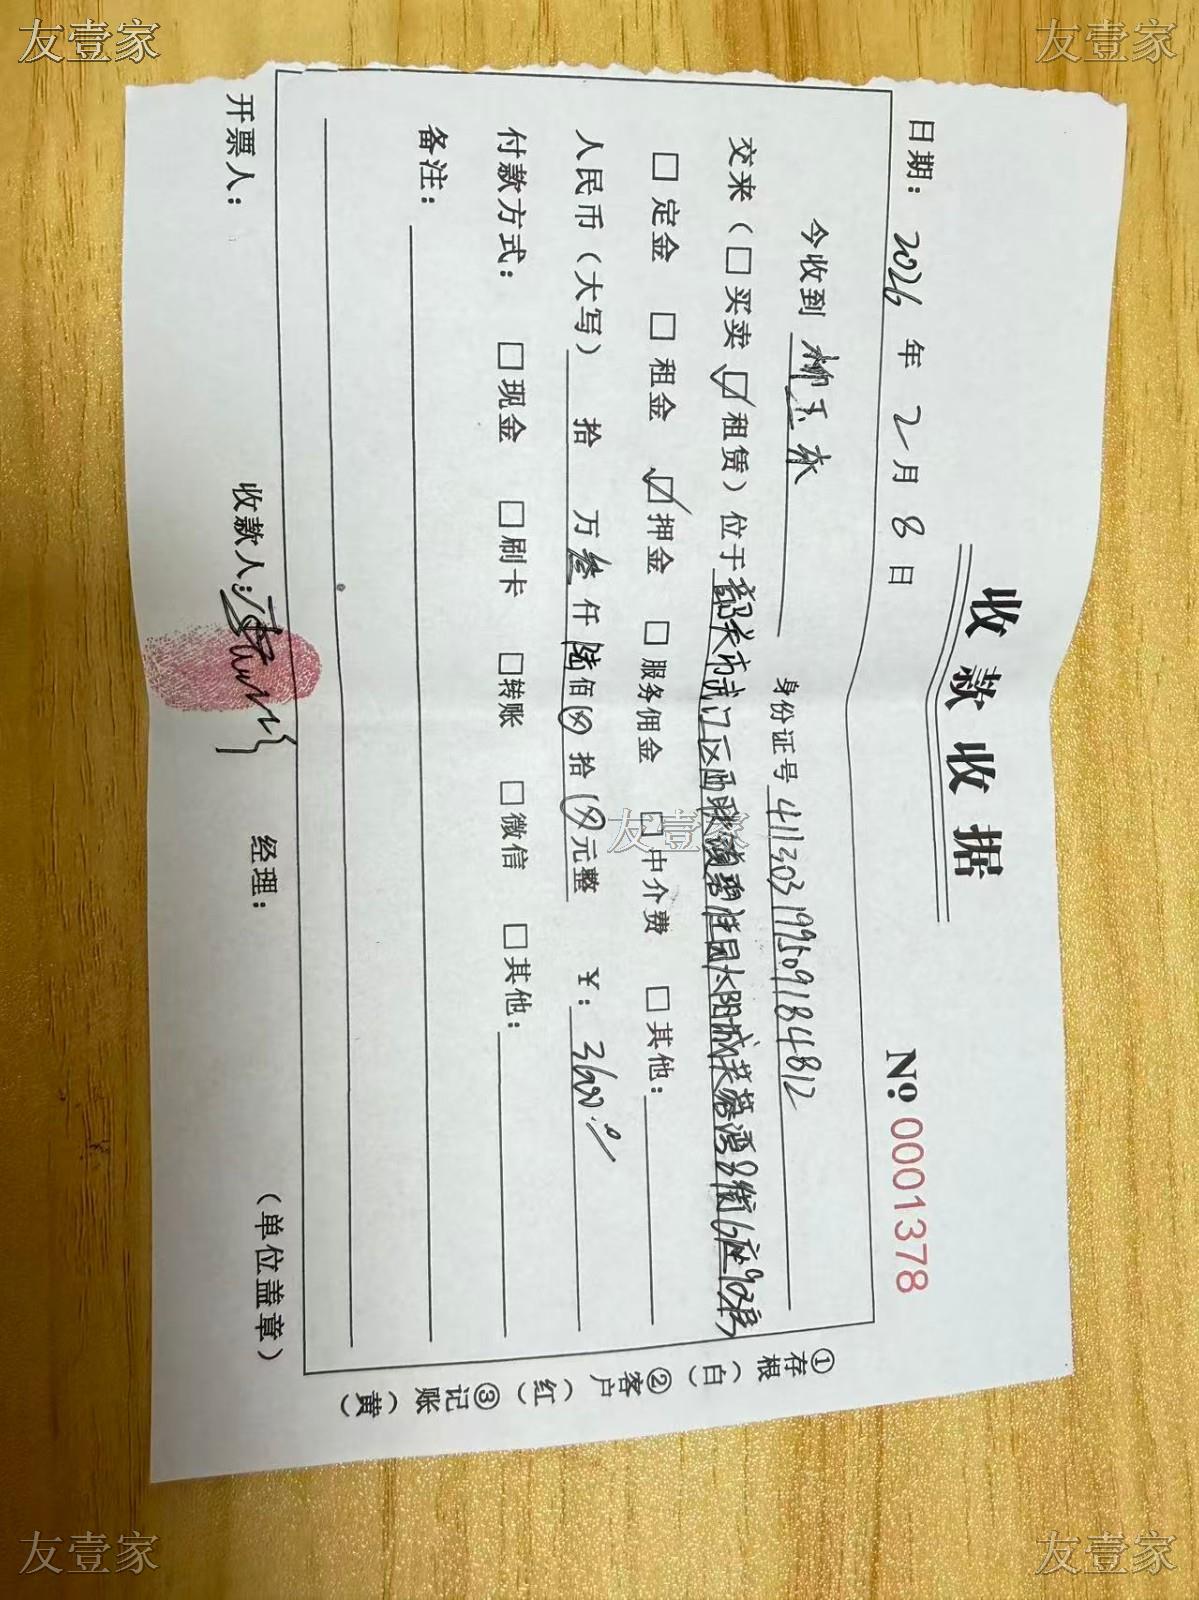 友壹家
友壹家
收款收据
No. 0001378
日期：2026 年 2 月 8 日
今收到 柳玉本 身份证号 411303199509184812
交来（□买卖 ☑租赁）位于 韶关市武江区西联镇碧桂园太阳城芙蓉湾 街 座902房
□定金 □租金 ☑押金 □服务佣金 □中介费 □其他：
人民币（大写） 拾 万叁仟陆佰 拾 元整 ¥：3600.0
付款方式： □现金 □刷卡 □转账 □微信 □其他：
备注：
开票人： 收款人： 经理： （单位盖章）
①存根（白）②客户（红）③记账（黄）
友壹家
友壹家
友壹家